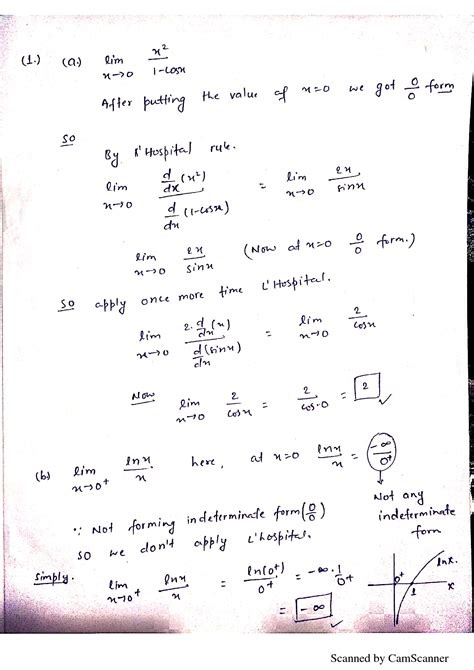 (1.) (a.) lim x→0 x²/1-cosx
After putting the value of x=0 we got 0/0 form
So
By L'Hospital rule.
lim x→0 d/dx (x²) / d/dx (1-cosx) = lim x→0 2x/sinx
lim x→0 2x/sinx (Now at x=0 0/0 form.)
So apply once more time L'Hospital.
lim x→0 2.d/dx (x) / d/dx (sinx) = lim x→0 2/cosx
Now lim x→0 2/cosx = 2/cos0 = 2
(b) lim x→0⁺ lnx/x. here, at x=0 lnx/x = -∞/0⁺
Not any indeterminate form
∵ Not forming indeterminate form (0/0)
So we don't apply L'hospital.
Simply. lim x→0⁺ lnx/x = ln(0⁺)/0⁺ = -∞.1/0⁺
= -∞
0⁺ 1 lnx. x
Scanned by CamScanner